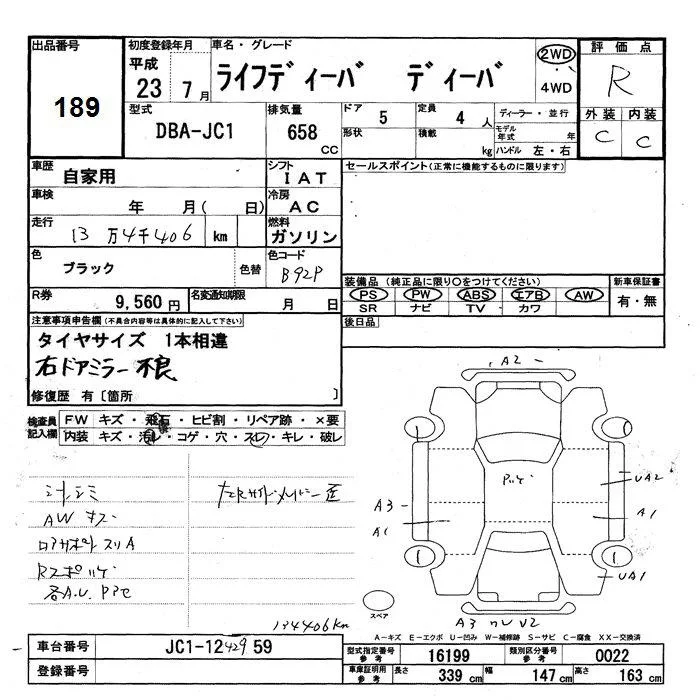 出品番号 初度登録年月 車名・グレード 2WD 評価点
189 平成 23 7月 ライフディーバ ディーバ 4WD R
型式 排気量 ドア 5 定員 4人 ディーラー・並行 外装 内装
DBA-JC1 658 CC 形状 積載 kg モデル年式 年 ハンドル 左・右 C C
車歴 自家用 シフト IAT セールスポイント(正常に機能するものに限り)
車検 年 月( 日) 冷房 AC
走行 13万4千406 km 燃料 ガソリン
色 ブラック 色替 色コード B92P
装備品 (純正品に限り○をつけてください) 新車保証書
R券 9,560円 名変通知期限 月 日 PS PW ABS エアB AW 有・無
SR ナビ TV カワ
注意事項申告欄(不具合内容等は具体的に記入して下さい) 後日品
タイヤサイズ 1本相違
右ドアミラー不良
修復歴 有〔箇所 〕
検査員記入欄 FW キズ・飛石・ヒビ割・リペア跡・×要
内装 キズ・汚レ・コゲ・穴・スレ・キレ・破レ
A2
UA2
A3
A1
A1
UA1
AW キズ
134406km
スペア
A3 V2
A-キズ E-エクボ U-凹み W-補修跡 S-サビ C-腐食 XX-交換済
車台番号 JC1-1242959 型式指定番号 参考 16199 類別区分番号 参考 0022
登録番号 車庫証明用 参考 長さ 339cm 幅 147cm 高さ 163cm